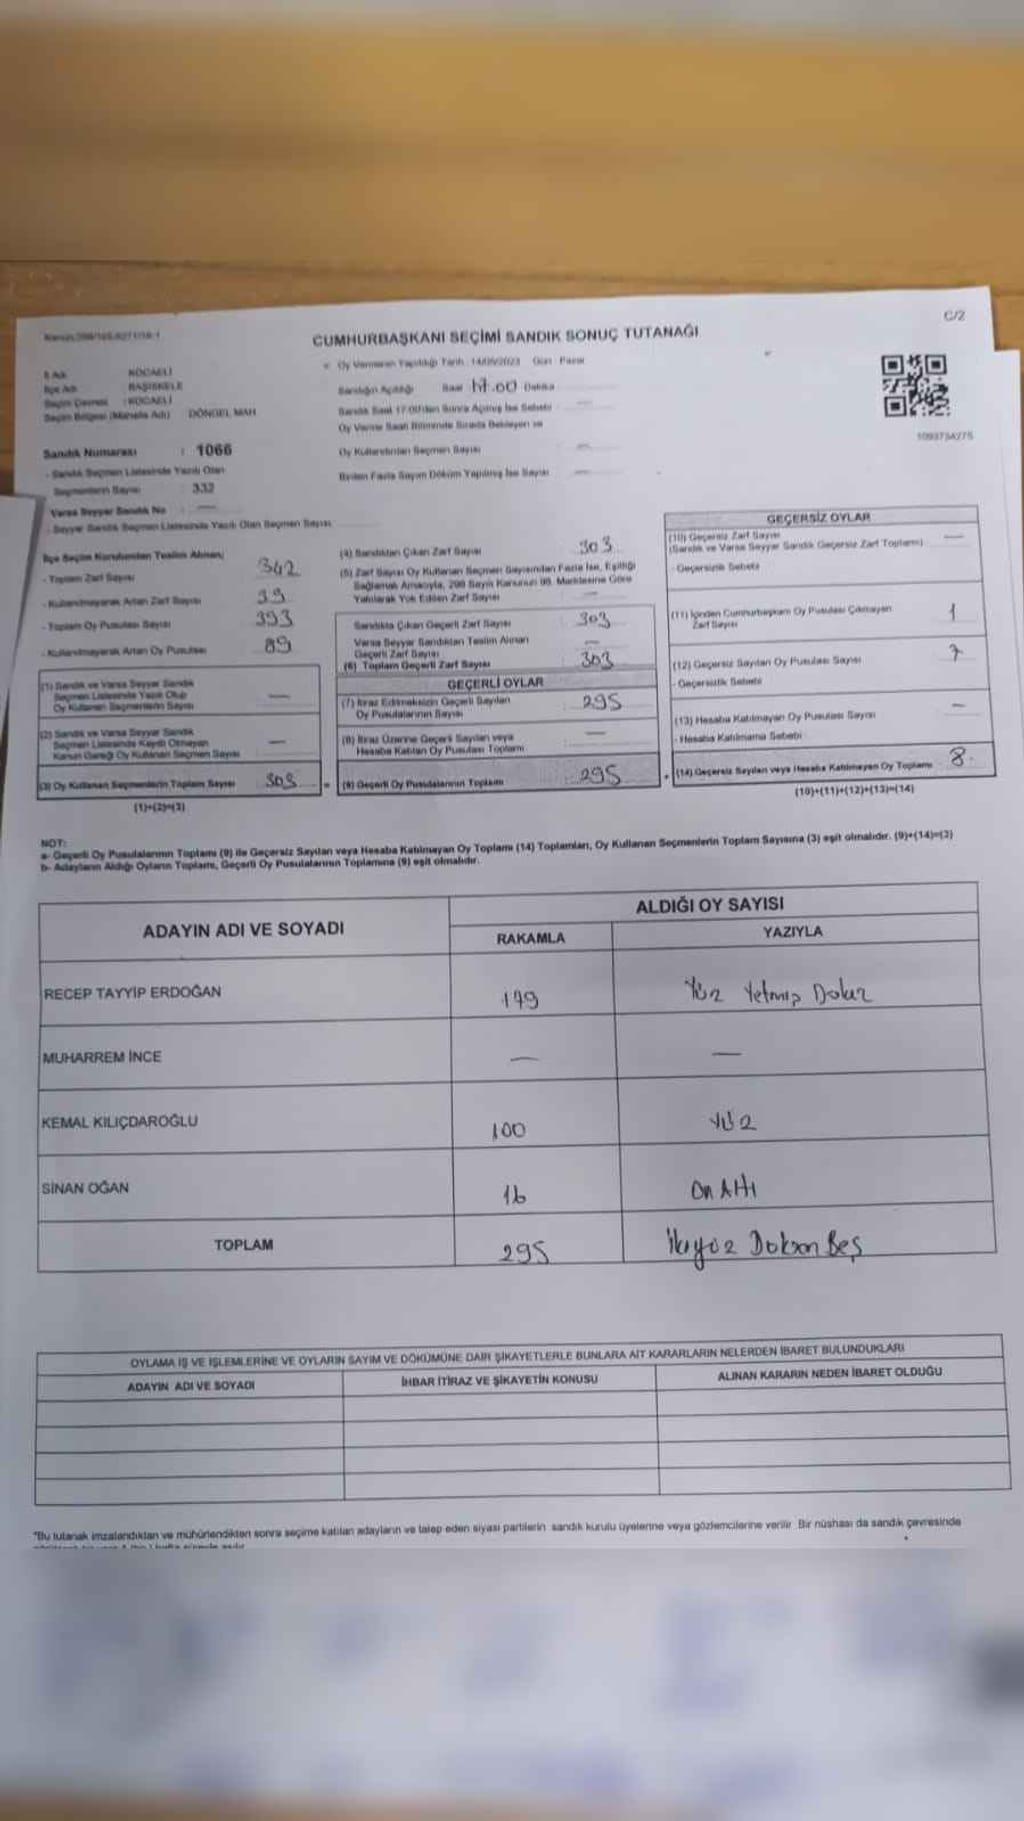 C/2
CUMHURBAŞKANI SEÇİMİ SANDIK SONUÇ TUTANAĞI
İl Adı KOCAELİ
İlçe Adı BAŞİSKELE
Seçim Çevresi : KOCAELİ
Seçim Bölgesi (Mahalle Adı) DÖNGEL MAH
Sandık Numarası : 1066
- Sandık Seçmen Listesinde Yazılı Olan
Seçmenlerin Sayısı : 332
Varsa Seyyar Sandık No —
- Seyyar Sandık Seçmen Listesinde Yazılı Olan Seçmen Sayısı
Oy Vermenin Yapıldığı Tarih : 14/05/2023 Gün : Pazar
Sandığın Açıldığı Saat 17.00 Dakika
Sandık Saat 17:00'dan Sonra Açılmış İse Sebebi —
Oy Verme Saati Bitiminde Sırada Bekleyen ve
Oy Kullandırılan Seçmen Sayısı —
Birden Fazla Sayım Döküm Yapılmış İse Sayısı —
1093734275
İlçe Seçim Kurulundan Teslim Alınan;
- Toplam Zarf Sayısı 342
- Kullanılmayarak Artan Zarf Sayısı 39
- Toplam Oy Pusulası Sayısı 393
- Kullanılmayarak Artan Oy Pusulası 89
(1) Sandık ve Varsa Seyyar Sandık
Seçmen Listesinde Yazılı Olup
Oy Kullanan Seçmenlerin Sayısı —
(2) Sandık ve Varsa Seyyar Sandık
Seçmen Listesinde Kayıtlı Olmayan
Kanun Gereği Oy Kullanan Seçmen Sayısı —
(3) Oy Kullanan Seçmenlerin Toplam Sayısı 303
(1)+(2)=(3)
(4) Sandıktan Çıkan Zarf Sayısı 303
(5) Zarf Sayısı Oy Kullanan Seçmen Sayısından Fazla İse, Eşitliği
Sağlamak Amacıyla, 298 Sayılı Kanunun 98. Maddesine Göre
Yakılarak Yok Edilen Zarf Sayısı —
Sandıkta Çıkan Geçerli Zarf Sayısı 303
Varsa Seyyar Sandıktan Teslim Alınan
Geçerli Zarf Sayısı —
(6) Toplam Geçerli Zarf Sayısı 303
GEÇERLİ OYLAR
(7) İtiraz Edilmeksizin Geçerli Sayılan
Oy Pusulalarının Sayısı 295
(8) İtiraz Üzerine Geçerli Sayılan veya
Hesaba Katılan Oy Pusulası Toplamı —
= (9) Geçerli Oy Pusulalarının Toplamı 295
GEÇERSİZ OYLAR
(10) Geçersiz Zarf Sayısı —
(Sandık ve Varsa Seyyar Sandık Geçersiz Zarf Toplamı)
- Geçersizlik Sebebi
(11) İçinden Cumhurbaşkanı Oy Pusulası Çıkmayan
Zarf Sayısı 1
(12) Geçersiz Sayılan Oy Pusulası Sayısı 7
- Geçersizlik Sebebi
(13) Hesaba Katılmayan Oy Pusulası Sayısı —
- Hesaba Katılmama Sebebi
+ (14) Geçersiz Sayılan veya Hesaba Katılmayan Oy Toplamı 8
(10)+(11)+(12)+(13)=(14)
NOT:
a- Geçerli Oy Pusulalarının Toplamı (9) ile Geçersiz Sayılan veya Hesaba Katılmayan Oy Toplamı (14) Toplamları, Oy Kullanan Seçmenlerin Toplam Sayısına (3) eşit olmalıdır. (9)+(14)=(3)
b- Adayların Aldığı Oyların Toplamı, Geçerli Oy Pusulalarının Toplamına (9) eşit olmalıdır.
ADAYIN ADI VE SOYADI
ALDIĞI OY SAYISI
RAKAMLA YAZIYLA
RECEP TAYYİP ERDOĞAN 179 Yüz Yetmiş Dokuz
MUHARREM İNCE — —
KEMAL KILIÇDAROĞLU 100 Yüz
SİNAN OĞAN 16 On Altı
TOPLAM 295 İkiyüz Doksan Beş
OYLAMA İŞ VE İŞLEMLERİNE VE OYLARIN SAYIM VE DÖKÜMÜNE DAİR ŞİKAYETLERLE BUNLARA AİT KARARLARIN NELERDEN İBARET BULUNDUKLARI
ADAYIN ADI VE SOYADI İHBAR İTİRAZ VE ŞİKAYETİN KONUSU ALINAN KARARIN NEDEN İBARET OLDUĞU
*Bu tutanak imzalandıktan ve mühürlendikten sonra seçime katılan adayların ve talep eden siyasi partilerin sandık kurulu üyelerine veya gözlemcilerine verilir. Bir nüshası da sandık çevresinde